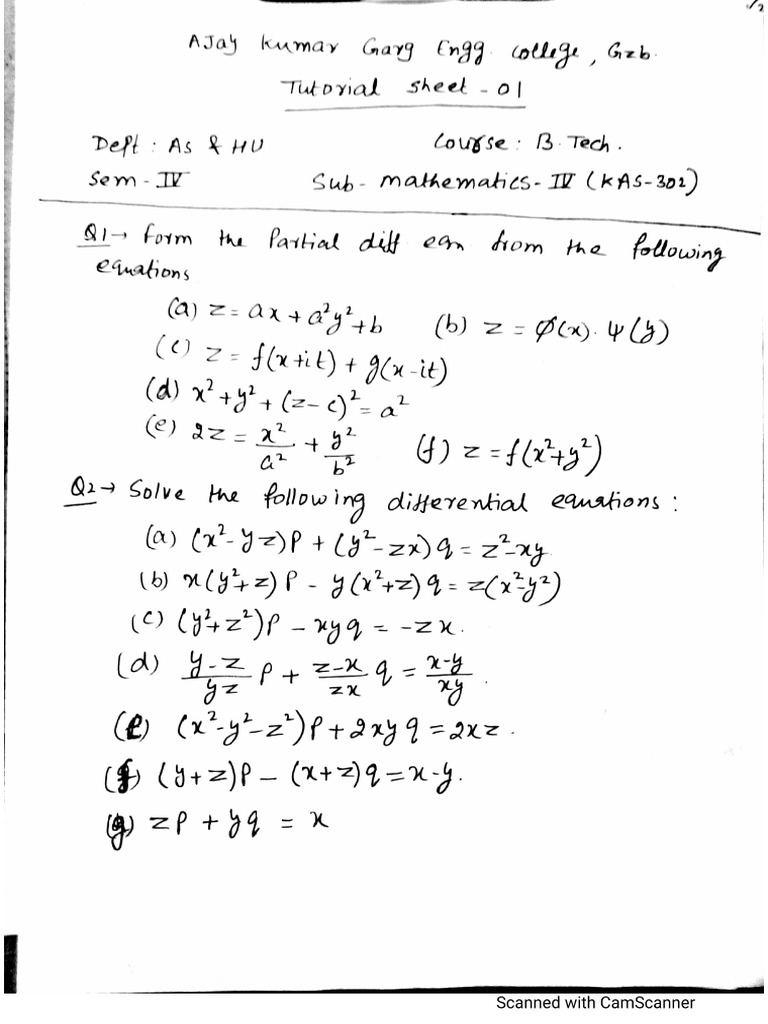 1/2
AJay Kumar Garg Engg. College, Gzb.
Tutorial Sheet - 01
Deptt : AS & HU Course : B. Tech.
Sem - IV Sub - Mathematics - IV (KAS-302)
Q1→ Form the Partial diff eqn from the following
equations
(a) z = ax + a²y² + b (b) z = Ø(x). Ψ(y)
(c) z = f(x+it) + g(x-it)
(d) x² + y² + (z-c)² = a²
(e) 2z = x²/a² + y²/b² (f) z = f(x²+y²)
Q2→ Solve the following differential equations :
(a) (x²-yz)p + (y²-zx)q = z²-xy
(b) x(y²+z)p - y(x²+z)q = z(x²-y²)
(c) (y²+z²)p - xyq = -zx.
(d) y-z/yz p + z-x/zx q = x-y/xy .
(e) (x²-y²-z²)p + 2xyq = 2xz .
(f) (y+z)p - (x+z)q = x-y.
(g) zp + yq = x
Scanned with CamScanner